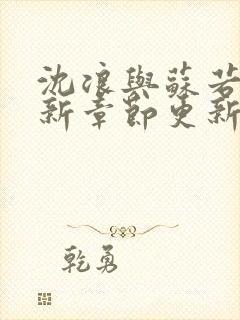 沈浪與蘇若
新章節更新
乾勇